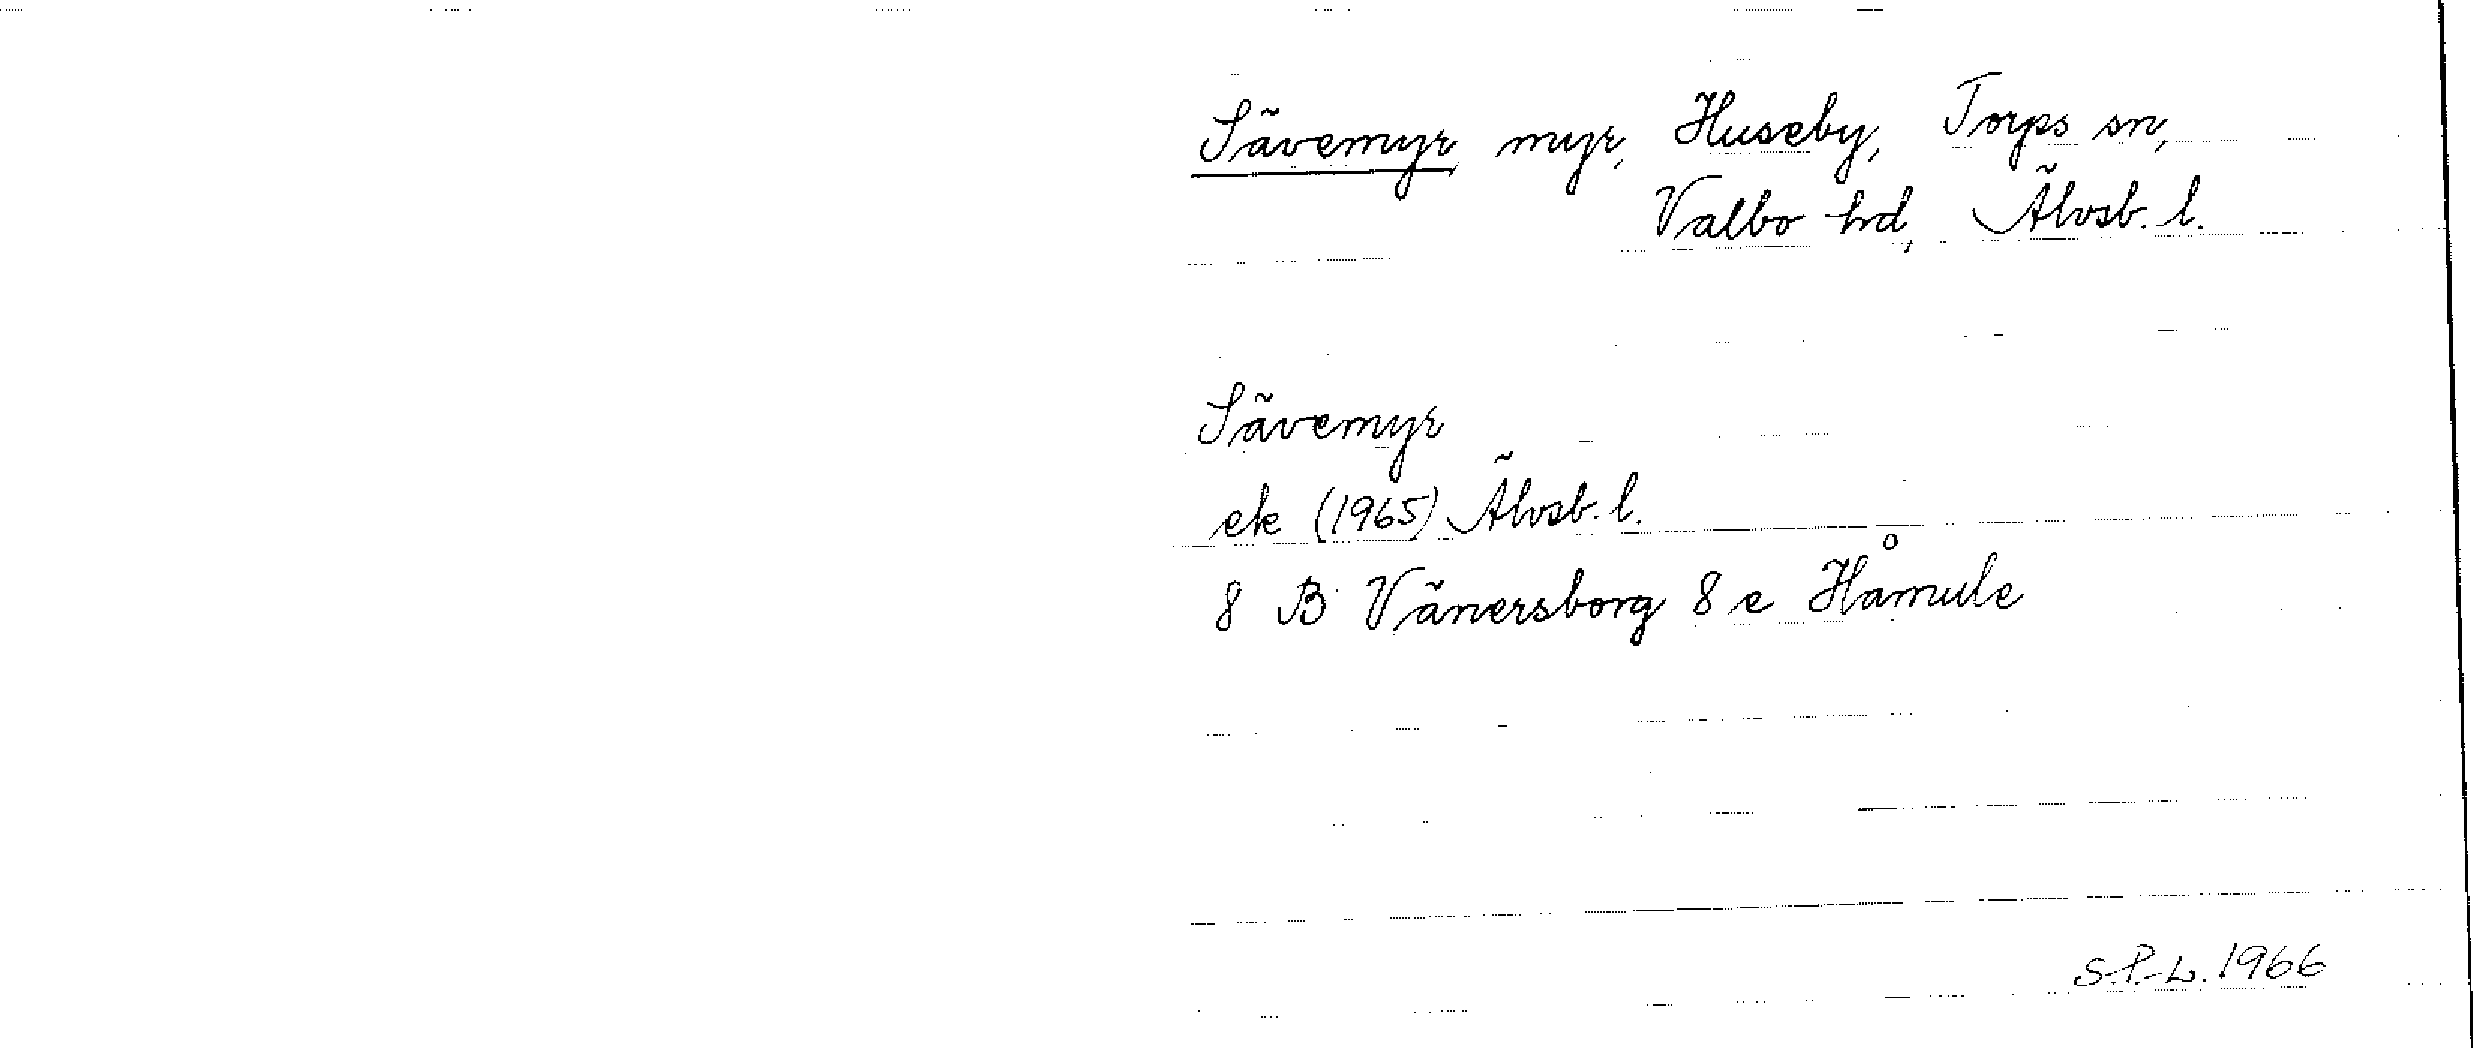 Sävemyr myr, Huseby, Torps sn,
Valbo hd, Älvsb. l.
Sävemyr
ek (1965) Älvsb. l.
8 B Vänersborg 8 e Håmule
S.P.L. 1966